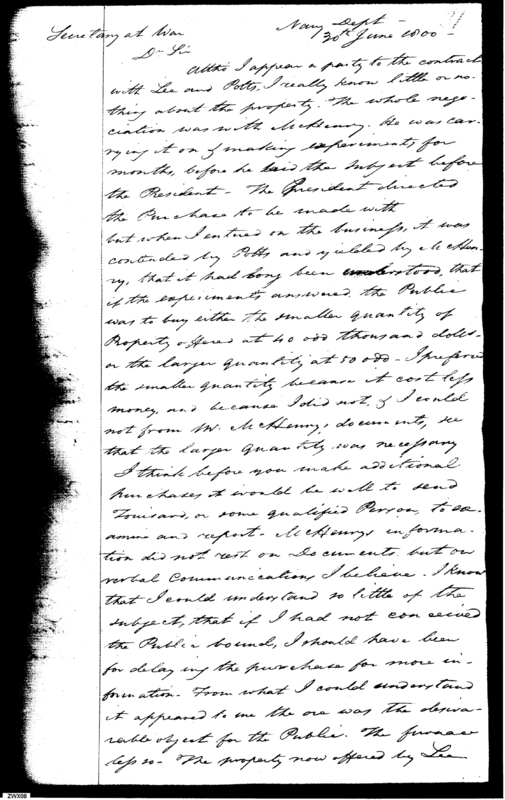 Navy Dept -
Secretary at War
30th June 1800 -
Dr Sir
Altho I appear a party to the contract
with Lee and Potts, I really know little or no-
thing about the property. The whole nego-
ciation was with McHenry. He was car-
rying it on & making experiments for
months, before he laid the subject before
the President - The President directed
the Purchase to be made with
but when I entered on the business, it was
contended by Potts and yielded by McHen-
ry, that it had long been understood, that
if the experiments answered, the Public
was to buy either the smaller quantity of
Property offered at 40 odd thousand dolls-
or the larger quantity at 50 odd - I preferred
the smaller quantity because it cost less
money, and because I did not, & I could
not from Mr. McHenry's documents, see
that the larger quantity was necessary
I think before you make additional
purchases it would be well to send
Tousard, or some qualified Person, to ex-
amine and report - McHenrys informa-
tion did not rest on Documents, but on
verbal Communications I believe. I know
that I could understand so little of the
subject, that if I had not conceived
the Public bound, I should have been
for delaying the purchase for more in-
formation - From what I could understand
it appeared to me the ore was the desira-
reable object for the Public. The furnace
less so - The property now offered by Lee
ZWX08